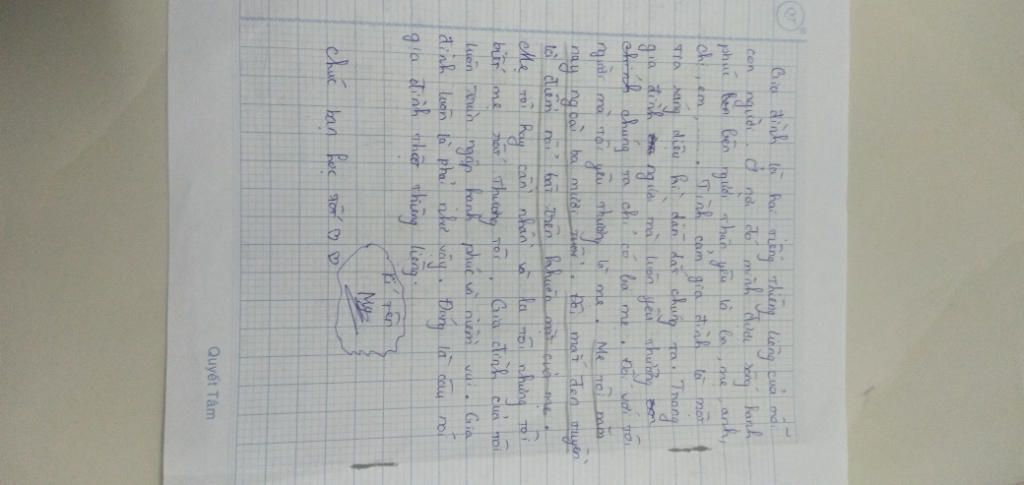 Gia đình là hai tiếng thiêng liêng của mỗi
con người. Ở nơi đó mình được sống hạnh
phúc bên người thân yêu là ba, mẹ, anh,
chị, em,....... Tình cảm gia đình là một
gia đình người mà luôn yêu thương
chúng ta chỉ có ba mẹ. Đối với tôi
người mà tôi yêu thương là mẹ. Mẹ tôi năm
nay ngoài ba mươi tuổi. Đôi mắt đen huyền
tô điểm nổi bật trên khuôn mặt của mẹ.
Mẹ tôi hay cằn nhằn và la tôi nhưng tôi
biết mẹ rất thương tôi. Gia đình của tôi
luôn tràn ngập hạnh phúc và niềm vui. Gia
đình luôn là phải như vậy. Đúng là câu nói
gia đình thật thiêng liêng.
Kí tên
My
Chúc bạn học tốt ♡ ♡
Quyết Tâm